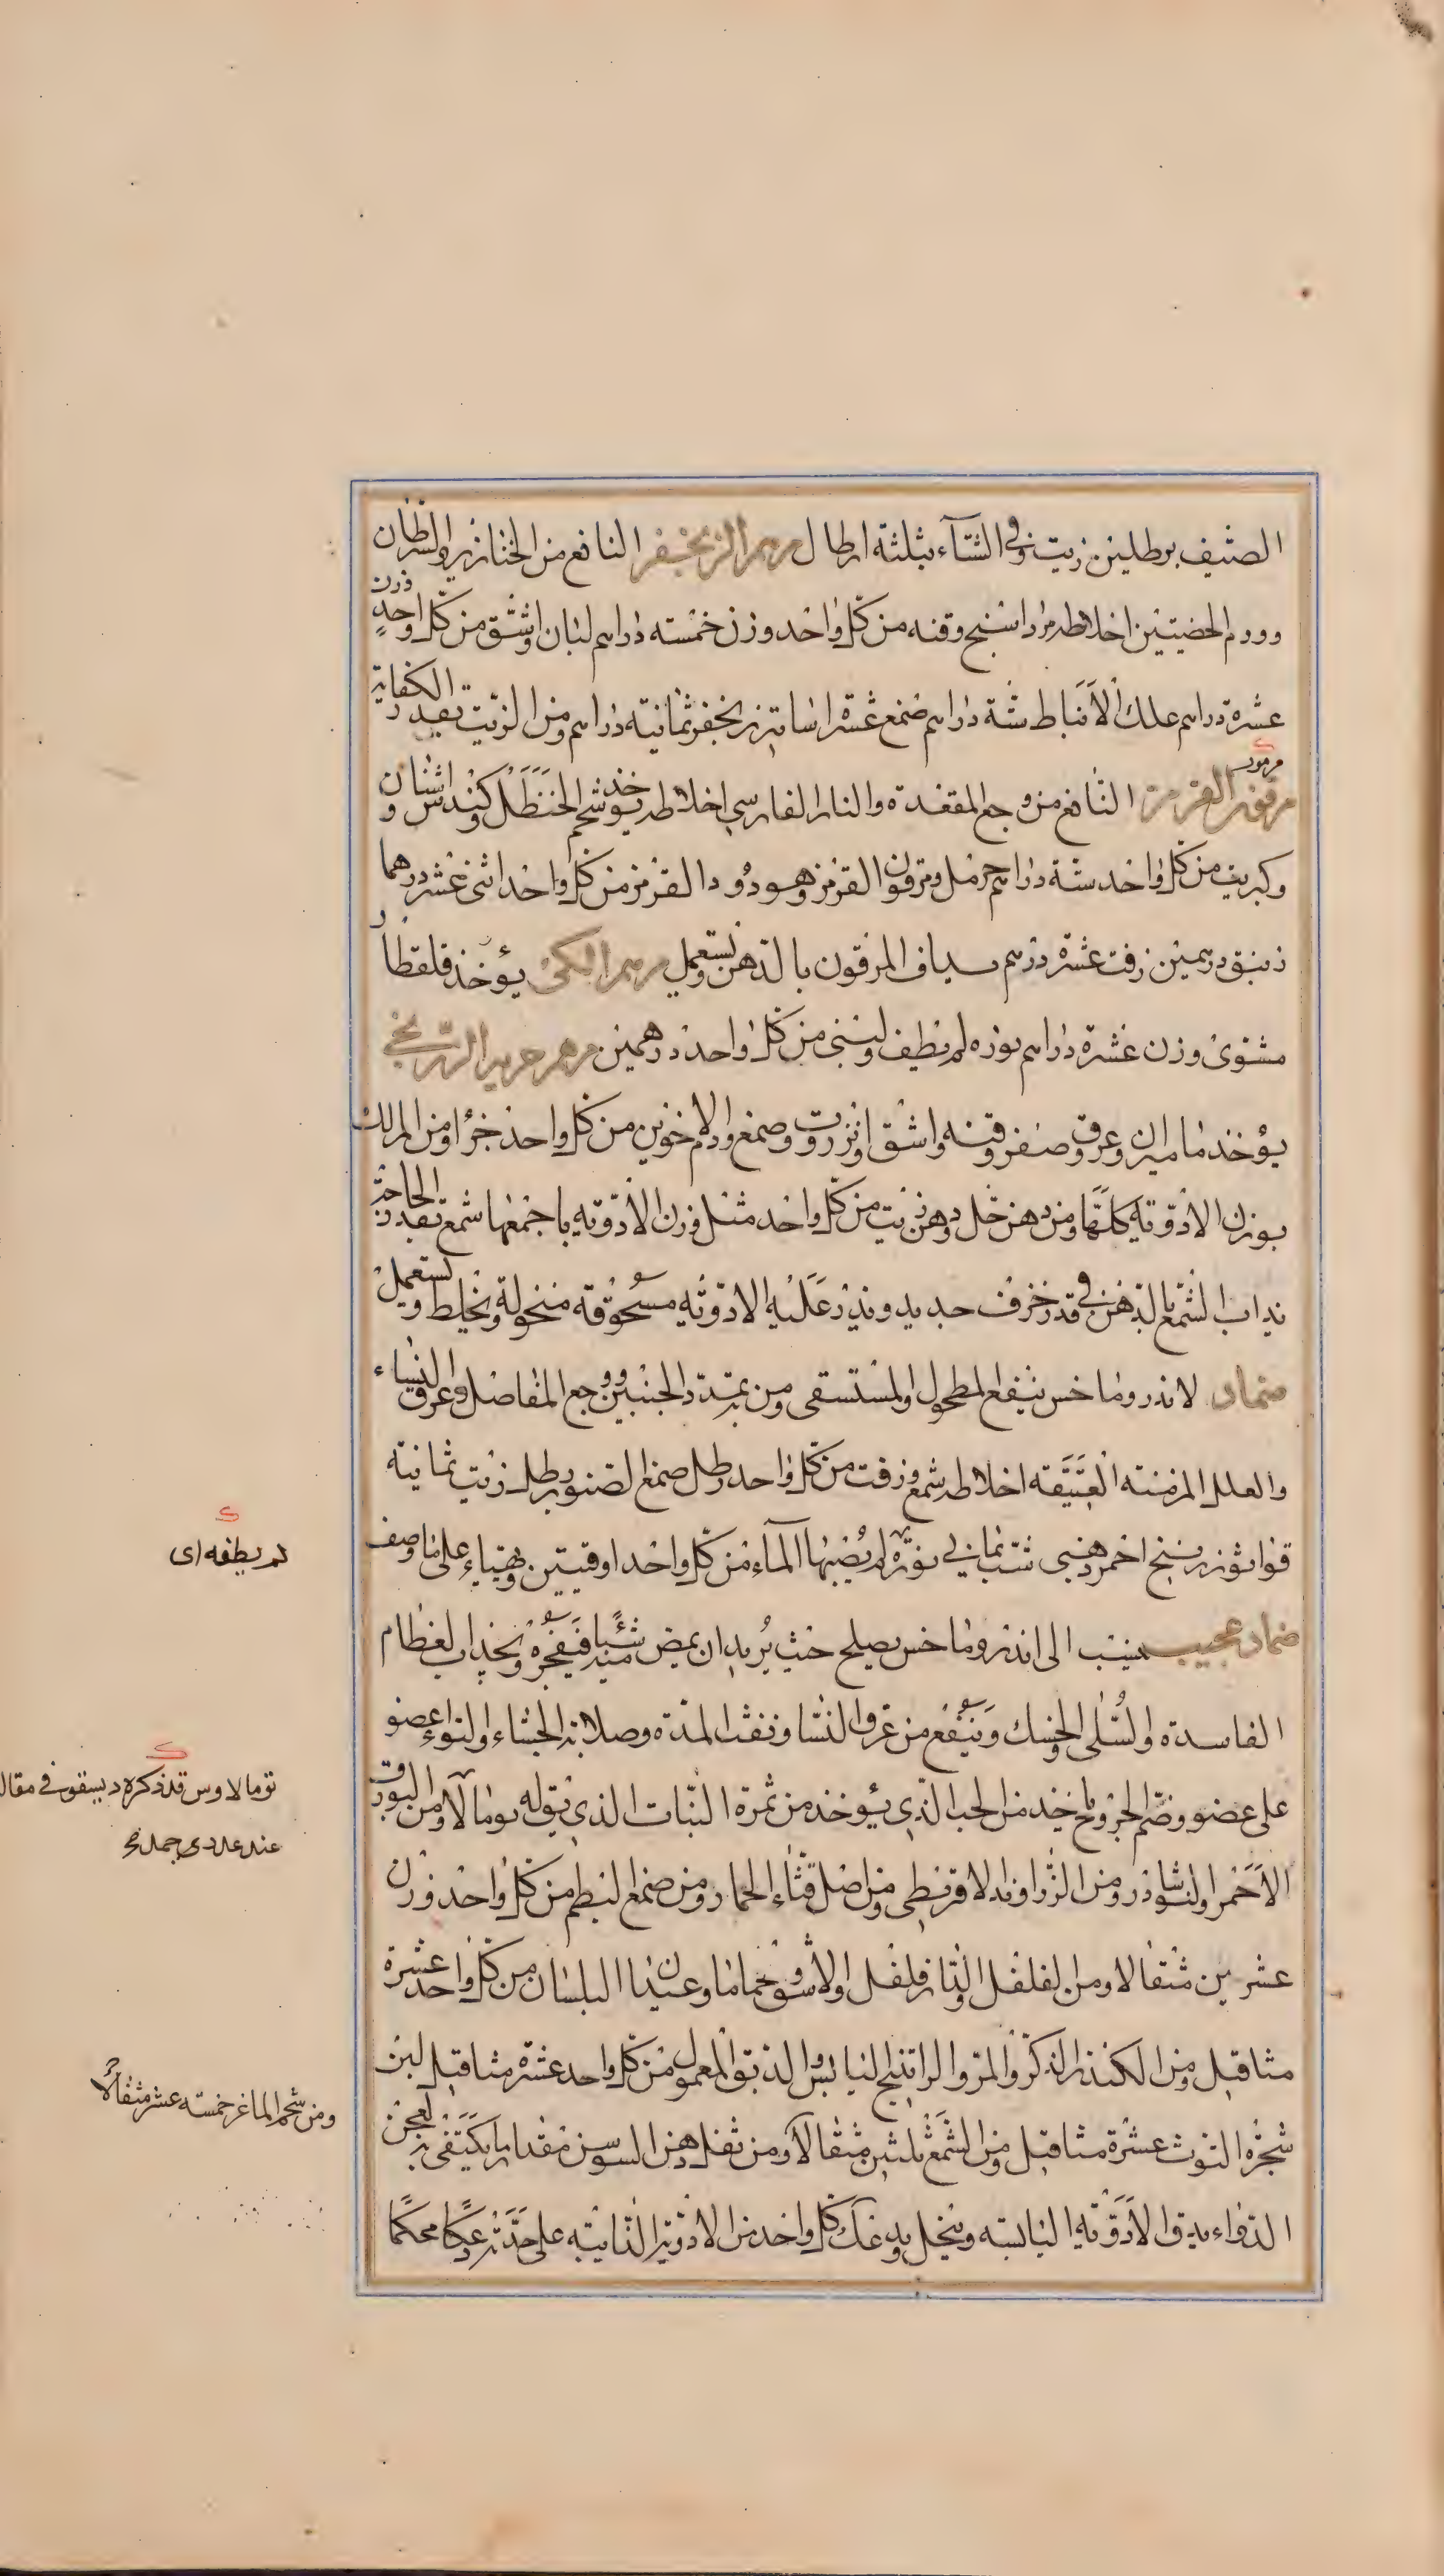 الصيف برطلين زيت وفي الشتاء بثلثة ارطال مرهم الزنجفر النافع من الخنازير والسرطان
وورم الخصيتين اخلاطه مرداسنج وقنه من كل واحد وزن خمسة دراهم لبان واشق من كل واحد وزن
عشرة دراهم علك الانباط ستة دراهم صمغ عشرة اساتير زنجفر ثمانية دراهم ومن الزيت بقدر الكفاية
مرقون القرمز النافع من وجع المقعدة والنار الفارسي اخلاطه يوخذ شحم الحنظل كندس واشنان
وكبريت من كل واحد ستة دراهم حرمل ومرقون القرمز وهو دود القرمز من كل واحد اثنى عشر درهما
زيبق درهمين زفت عشرة درهم يساف المرقون بالدهن ويستعمل مرهم الكي يؤخذ قلقطار
مشوى وزن عشرة دراهم نوره لم تطف ولبنى من كل واحد درهمين مرهم غريب الزرنيخي
يؤخذ ماميران وعروق صفر وقنه واشق وانزروت وصمغ ودم الاخوين من كل واحد جزؤا ومن المرتك
بوزن الادوية كلها ومن دهن خل ودهن زيت من كل واحد مثل وزن الادويه باجمعها شمع بقدر الحاجة
يذاب الشمع بالدهن في قدر خزف جديد ويذر عليه الادويه مسحوقه منخولة ويخلط ويستعمل
ضماد لاندروماخس ينفع المطحول والمستسقى ومن به تمدد الجنبين ووجع المفاصل وعرق النساء
والعلل المزمنه العتيقه اخلاطه شمع وزفت من كل واحد رطل صمغ الصنوبر رطل زيت ثمانية
قوانوثو زرنيخ احمر ذهبي شب يماني نورة لم يصبها الماء من كل واحد اوقيتين ويهياء على ما وصف
ضماد عجيب ينسب الى اندروماخس يصلح حيث يريد ان يمص شيئا فيفجره ويجذب العظام
الفاسدة والسلى والحسك وينفع من عرق النسا ونفث المدة وصلابة الجشاء والتواء عضو
على عضو وضم الجروح يؤخذ من الحب الذي يؤخذ من ثمرة النبات الذي يقوله ثومالاوس ومن البورق
الاحمر والنوشاذر ومن الزراوند الاقريطي ومن اصل قثاء الحمار ومن صمغ البطم من كل واحد وزن
عشرين مثقالا ومن الفلفل والدار فلفل والاشق وحماما وعيدان البلسان من كل واحد عشرة
مثاقيل ومن الكندر الذكر والمر والراتينج اليابس والدبق المعمول من كل واحد عشرة مثاقيل لبن
شجرة التوث عشرة مثاقيل ومن الشمع ثلثين مثقالا ومن ثفل دهن السوسن مقدار ما يكتفى به لعجن
الدواء يدق الادويه اليابسه وينخل ويدعك كل واحد من الادوية الذايبه على حدته دعكا محكما
لم يطفه اى
ثومالاوس قد ذكره ديسقوس في مقاله
ومن شحم الماعز خمسة عشر مثقالا